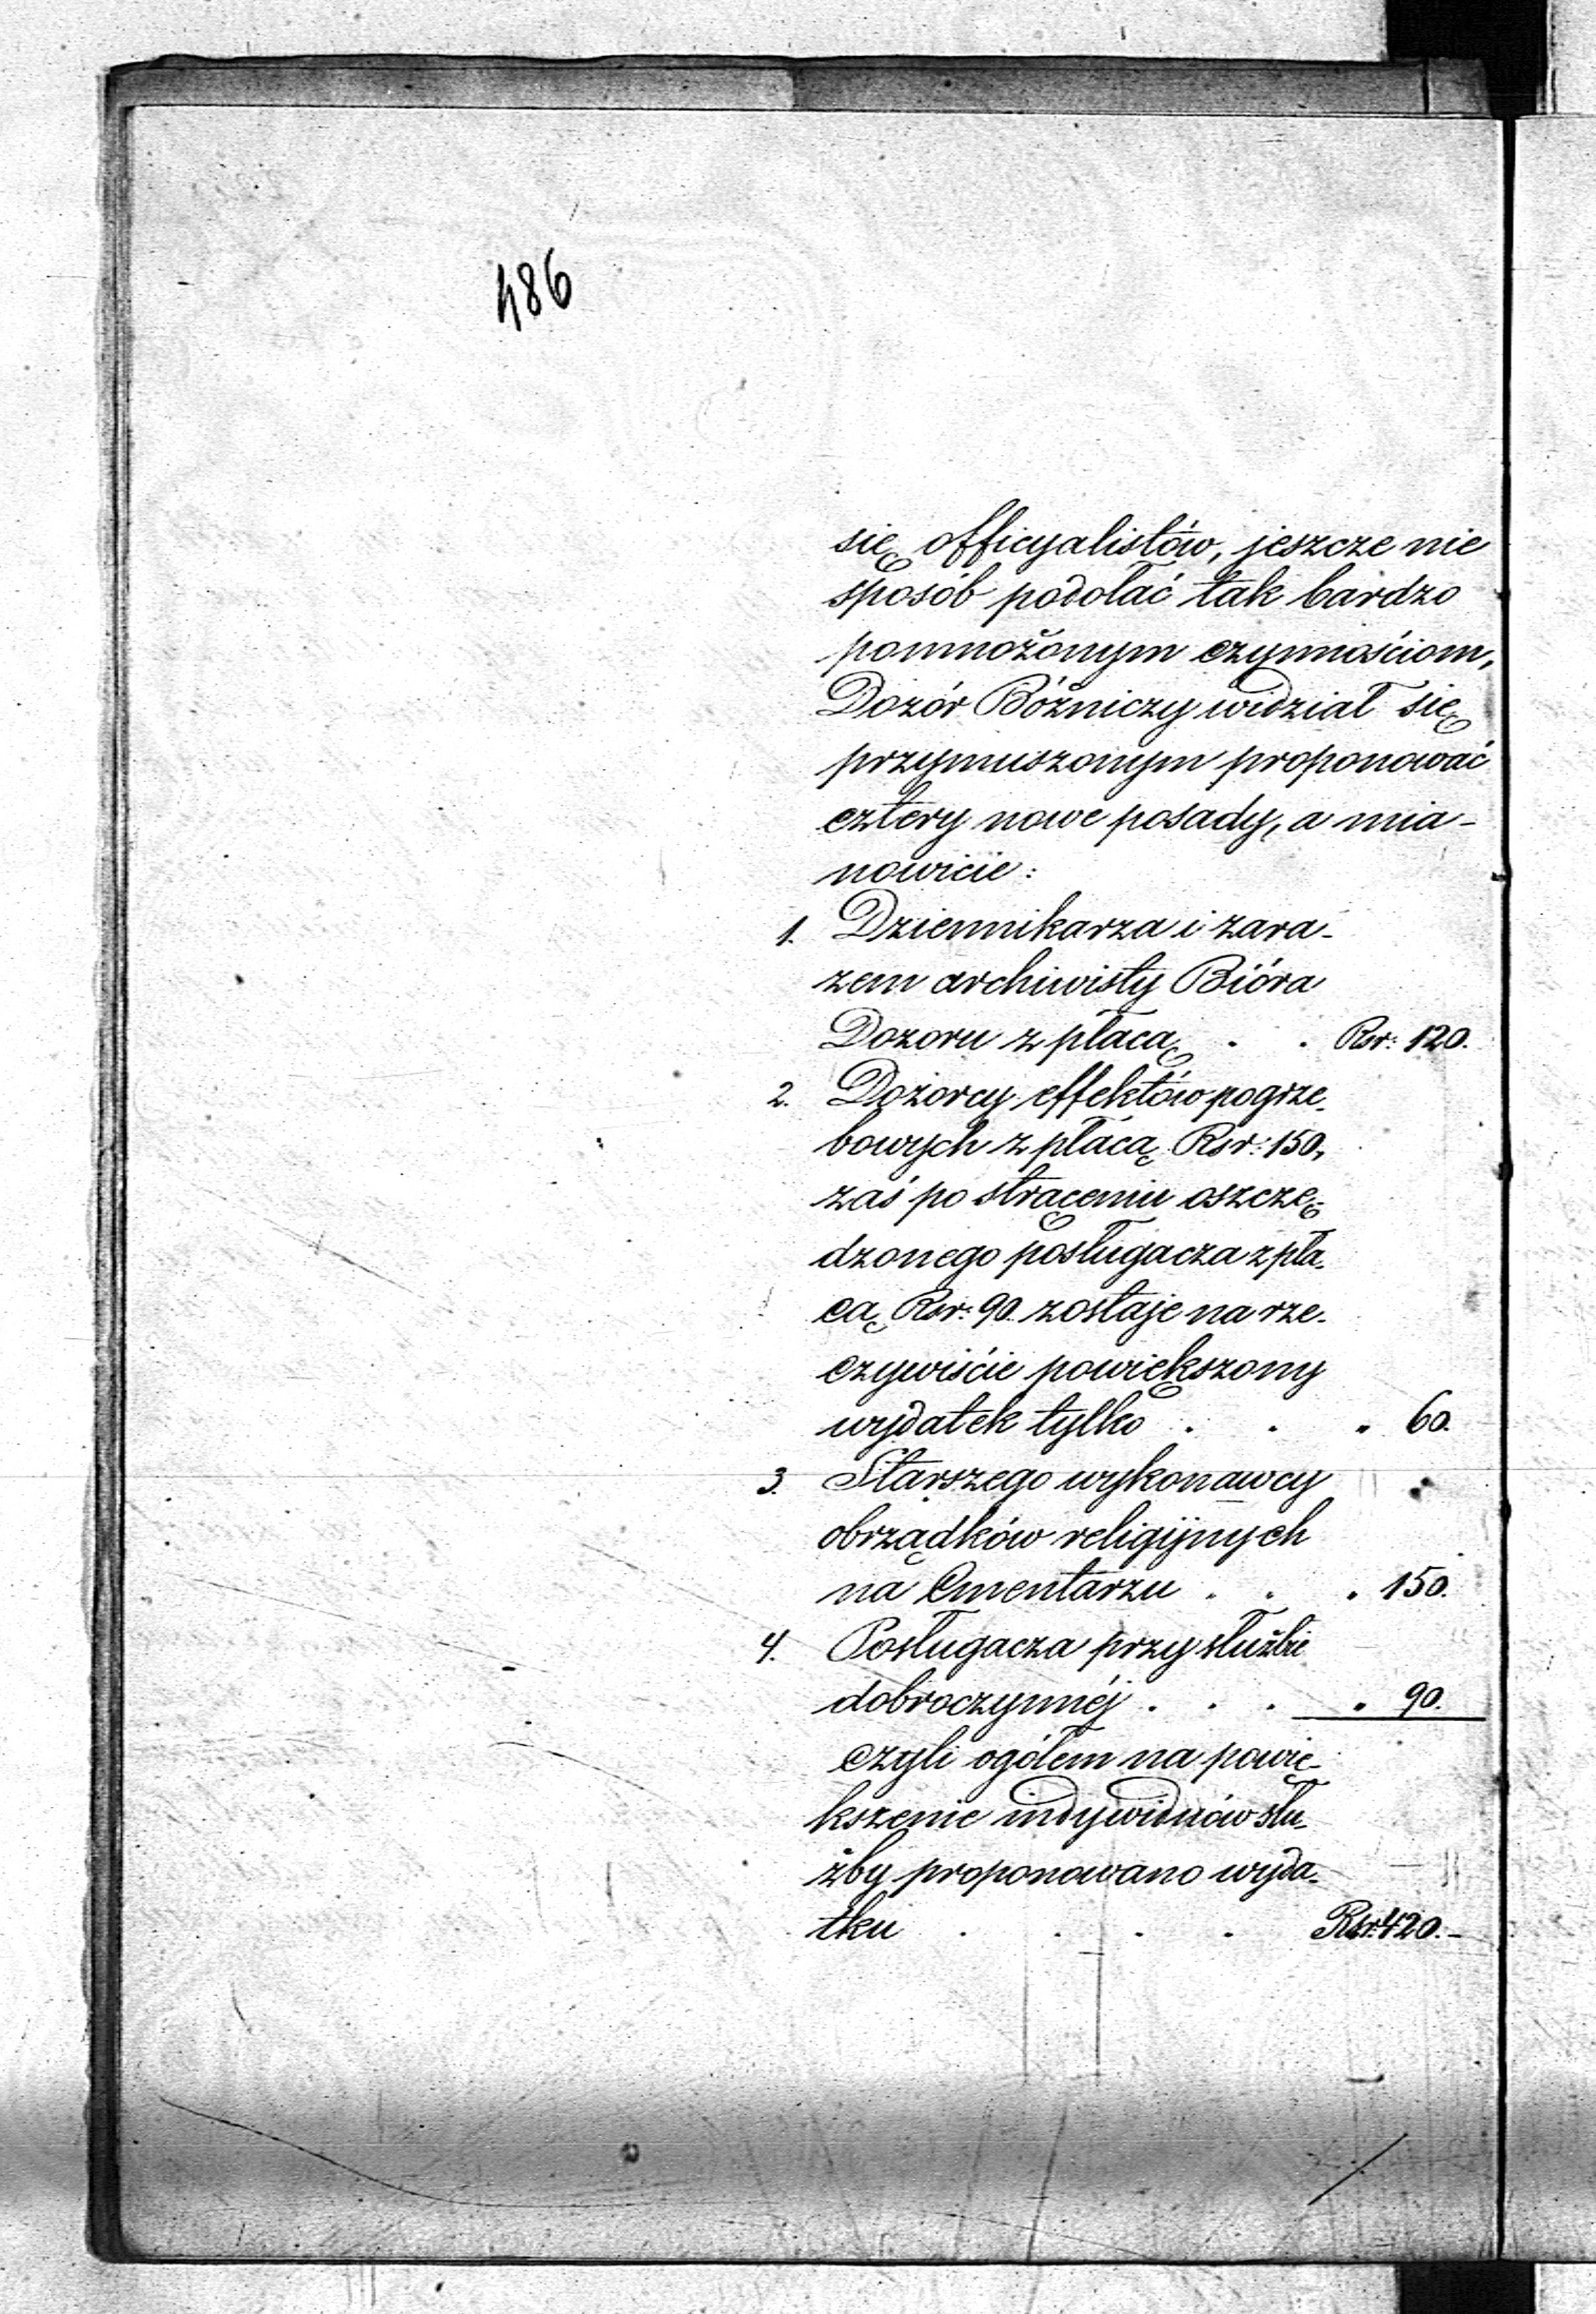 486
się officyalistów, jeszcze nie
sposób podołać tak bardzo
pomnożonym czynnościom,
Dozór Bóżniczy widział się
przymuszonym proponować
cztery nowe posady, a mia-
nowicie:
1. Dziennikarza i zara-
zem archiwisty Bióra
Dozoru z płacą . . Rsr: 120.
2. Dozorcy effektów pogrze-
bowych z płacą Rsr: 150,
zaś po strąceniu oszczę-
dzonego posługacza z pła-
cą Rsr: 90. zostaje na rze-
czywiście powiększony
wydatek tylko . . " 60.
3. Starszego wykonawcy
obrządków religijnych
na Cmentarzu . . " 150.
4. Posługacza przy służbie
dobroczynnéj . . . " 90.
czyli ogółem na powię-
kszenie indywiduów słu-
żby proponowano wyda-
tku . . . . Rsr: 420.-